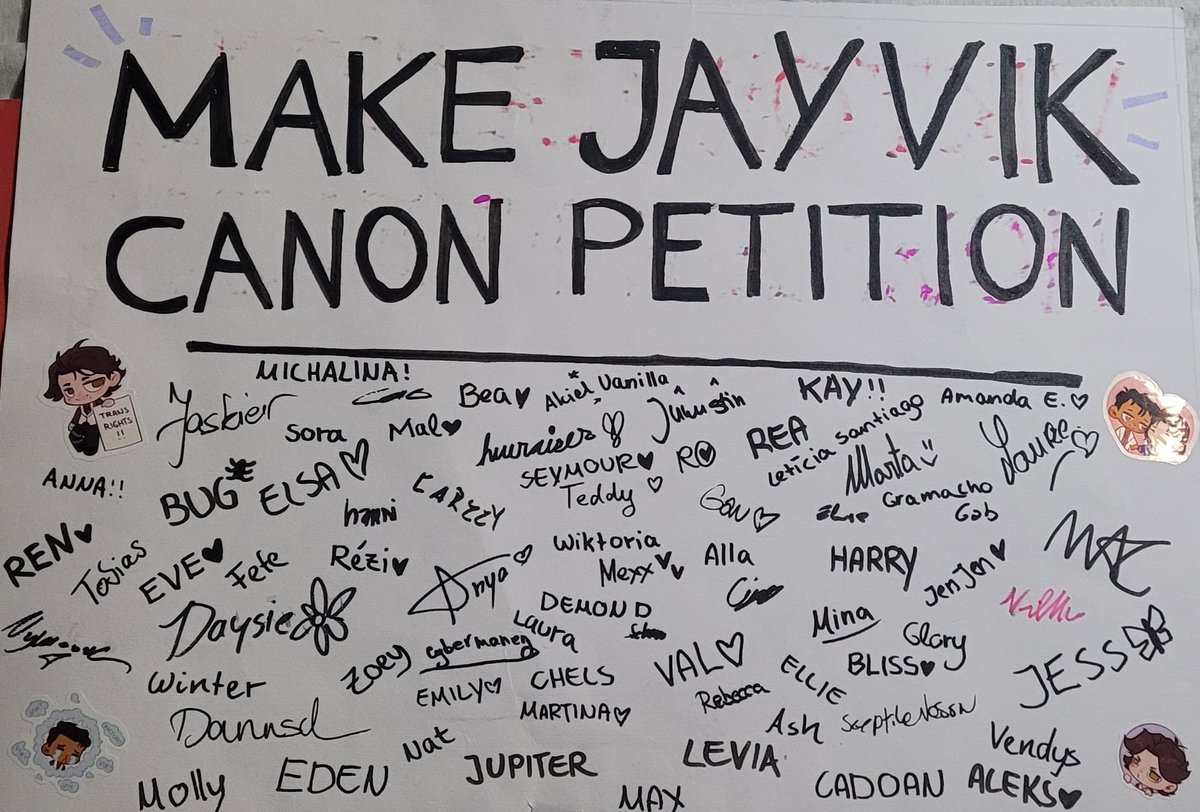 MAKE JAYVIK
CANON PETITION
TRANS
RIGHTS
!!
MICHALINA!
Jaskier
Bea♥
Akiel Vanilla
KAY!!
Amanda E.♡
sora
Mal♥
SEYMOUR♥
REA
Letícia Santiago
Marta
Laure♡
ANNA!!
BUG
ELSA♡
Teddy♡
RO
Gramacho
Gab
REN♥
Tobias
EVE♥
Fete
Rézi♥
Anya♡
Wiktoria
Mexx
Alla
HARRY
JenJen♥
Daysie
DEMOND
Laura
Mina
Glory
JESS
winter
zoey
cybermaneg
EMILY♡
CHELS
VAL♡
Rebecca
ELLIE
BLISS♥
Dannsd
MARTINA♡
Ash
Nat
Vendys
Molly
EDEN
JUPITER
MAX
LEVIA
CADOAN
ALEKS♥